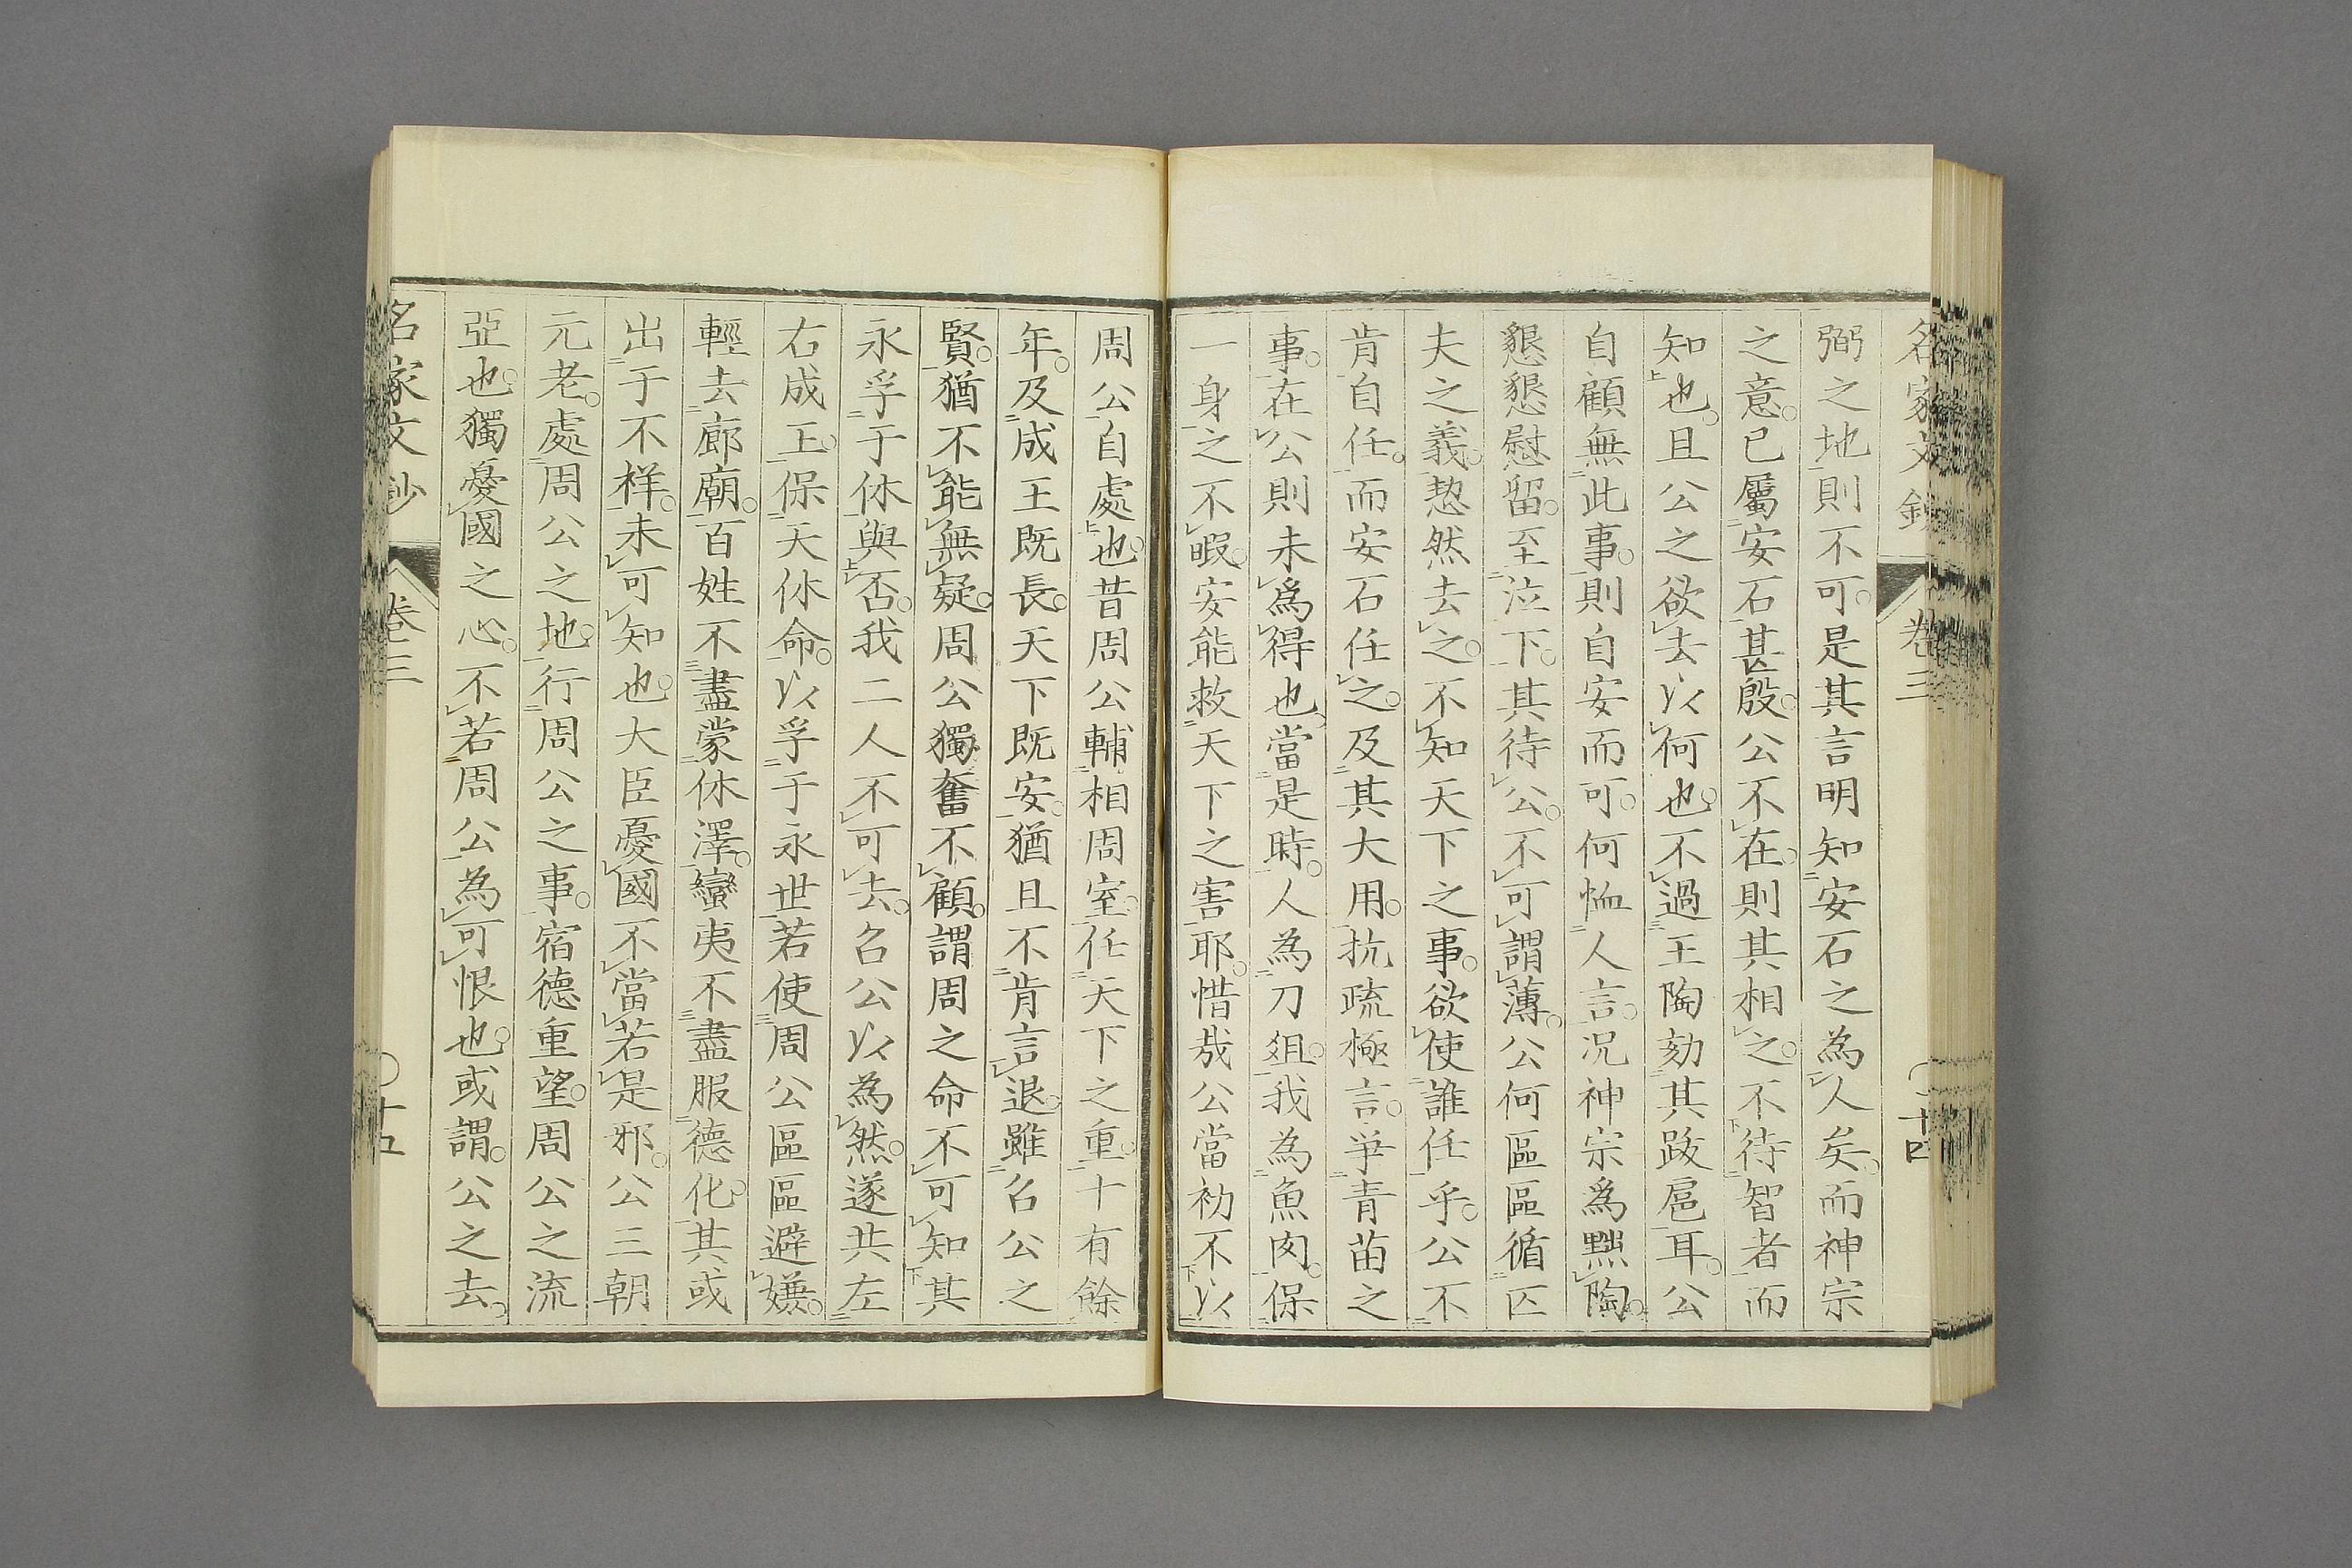 名家文鈔 卷三 十四
弼之地則不可是其言明知安石之為人矣而神宗
之意已屬安石甚殷公不在則其相之不待智者而
知也且公之欲去以何也不過王陶劾其跋扈耳公
自顧無此事則自安而可何恤人言況神宗為黜陶
懇懇慰留至泣下其待公不可謂薄公何區區循匹
夫之義恝然去之不知天下之事欲使誰任乎公不
肯自任而安石任之及其大用抗疏極言爭青苗之
事在公則未為得也當是時人為刀俎我為魚肉保
一身之不暇安能救天下之害耶惜哉公當初不以
周公自處也昔周公輔相周室任天下之重十有餘
年及成王既長天下既安猶且不肯言退雖召公之
賢猶不能無疑周公獨奮不顧謂周之命不可知其
永孚于休與否我二人不可去召公以為然遂共左
右成王保天休命以孚于永世若使周公區區避嫌
輕去廊廟百姓不盡蒙休澤蠻夷不盡服德化其或
出于不祥未可知也大臣憂國不當若是邪公三朝
元老處周公之地行周公之事宿德重望周公之流
亞也獨憂國之心不若周公為可恨也或謂公之去
名家文鈔 卷三 十五